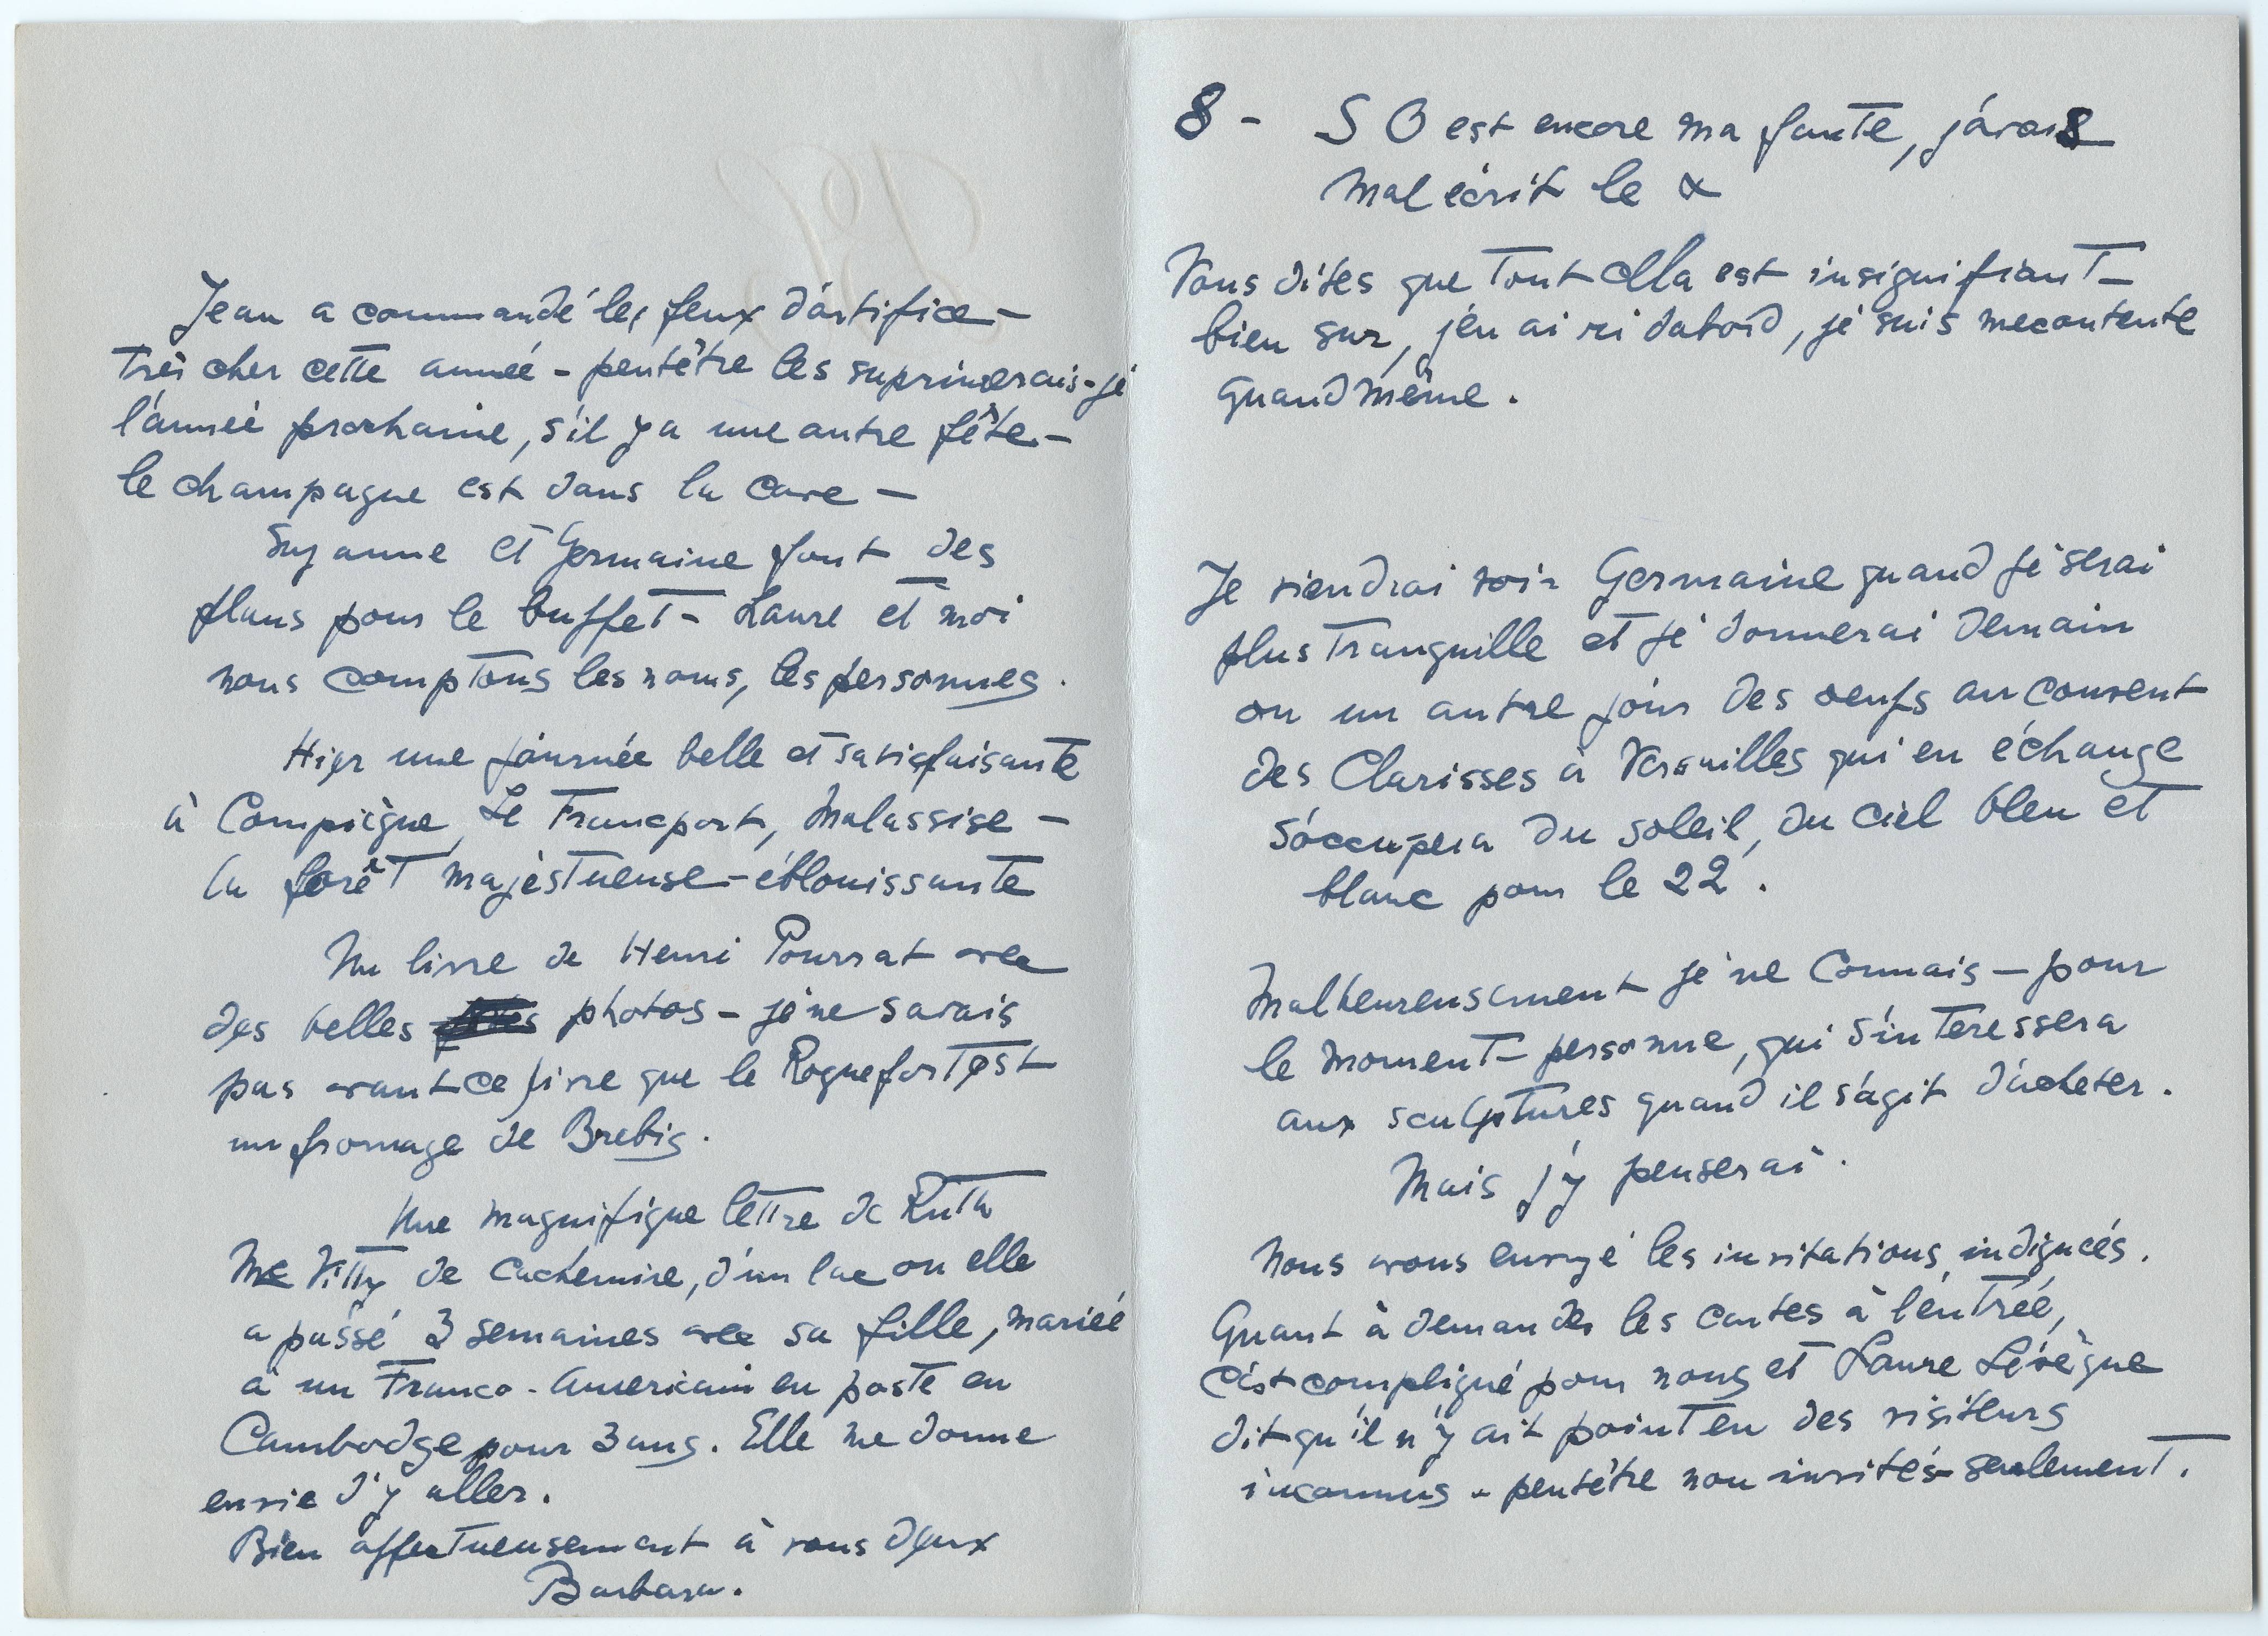 Jean a commandé les feux d'artifice -
très cher cette année - peutêtre les suprimerais-je
l'année prochaine, s'il y a une autre fête. -
le champagne est dans la cave -
Suzanne et Germaine font des
plans pour le buffet - Laure et moi
nous comptons les noms, les personnes.
Hier une journée belle et satisfaisante
à Compiègne, Le Francport, Malassise -
la forêt majestueuse - éblouissante
Un livre de Henri Pourrat avec
des belles photos - je ne savais
pas avant ce livre que le Roquefort est
un fromage de Brebis.
Une magnifique lettre de Ruth
Mc Vitty de Cachemire, d'un lac ou elle
a passé 3 semaines avec sa fille, mariée
à un Franco-Americain en poste en
Cambodge pour 3 ans. Elle me donne
envie d'y aller.
Bien affectueusement à vous deux
Barbara.
8 - S O est encore ma faute, j'avais
mal écrit le α
Vous dites que tout cela est insignifiant -
bien sur, j'en ai ri dabord, je suis mecontente
quand même.
Je viendrai voir Germaine quand je serai
plus tranquille et je donnerai demain
ou un autre jour des oeufs au couvent
des Clarisses à Versailles qui en échange
s'occupera du soleil, du ciel bleu et
blanc pour le 22.
Malheureusement je ne connais - pour
le moment - personne, qui s'interessera
aux sculptures quand il s'agit d'acheter.
Mais j'y penserai.
Nous avons envoyé les invitations indiquées.
Quant à demander les cartes à l'entrée,
c'est compliqué pour nous et Laure Lévèque
dit qu'il n'y ait point eu des visiteurs
inconnus - peutêtre non invités seulement.